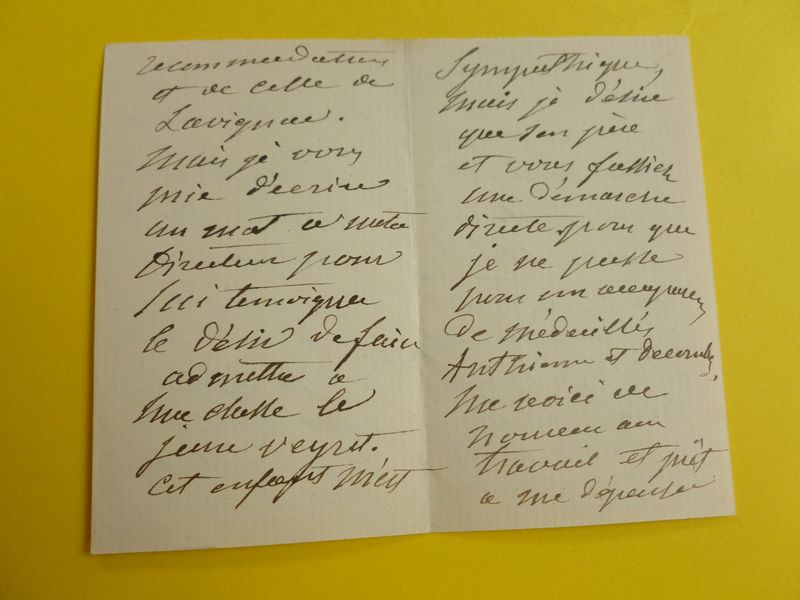 recommandations
et de celle de
Lavignac.
Mais je vous
prie d'écrire
un mot a notre
Directeur pour
lui temoigner
le désir de faire
admettre a
ma classe le
jeune Veyret.
Cet enfant m'est
Sympathique,
mais je désire
que son père
et vous fassiez
une démarche
directe pour que
je ne passe
pour un accapareur
de médaillés
Anthiome et Decombes,
Me voici de
nouveau au
travail et prêt
a me dépenser